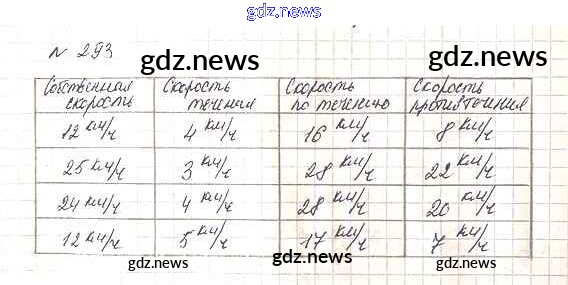 gdz.news
№ 293
gdz.news gdz.news
Собственная скорость Скорость течения Скорость по течению Скорость против течения
12 км/ч 4 км/ч 16 км/ч 8 км/ч
25 км/ч 3 км/ч 28 км/ч 22 км/ч
24 км/ч 4 км/ч 28 км/ч 20 км/ч
12 км/ч 5 км/ч 17 км/ч 7 км/ч
gdz.news gdz.news gdz.news